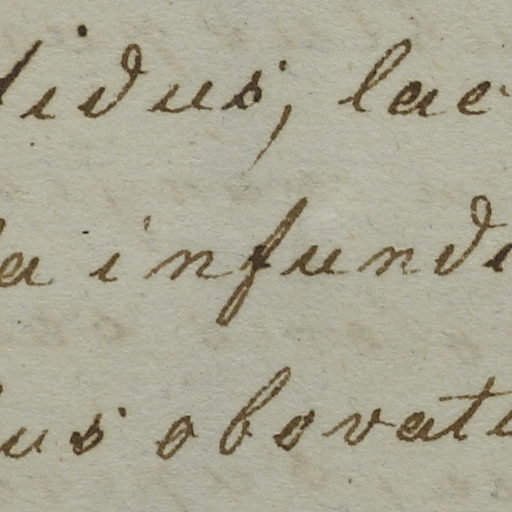 lidus, lae
la infundi
lus obovati